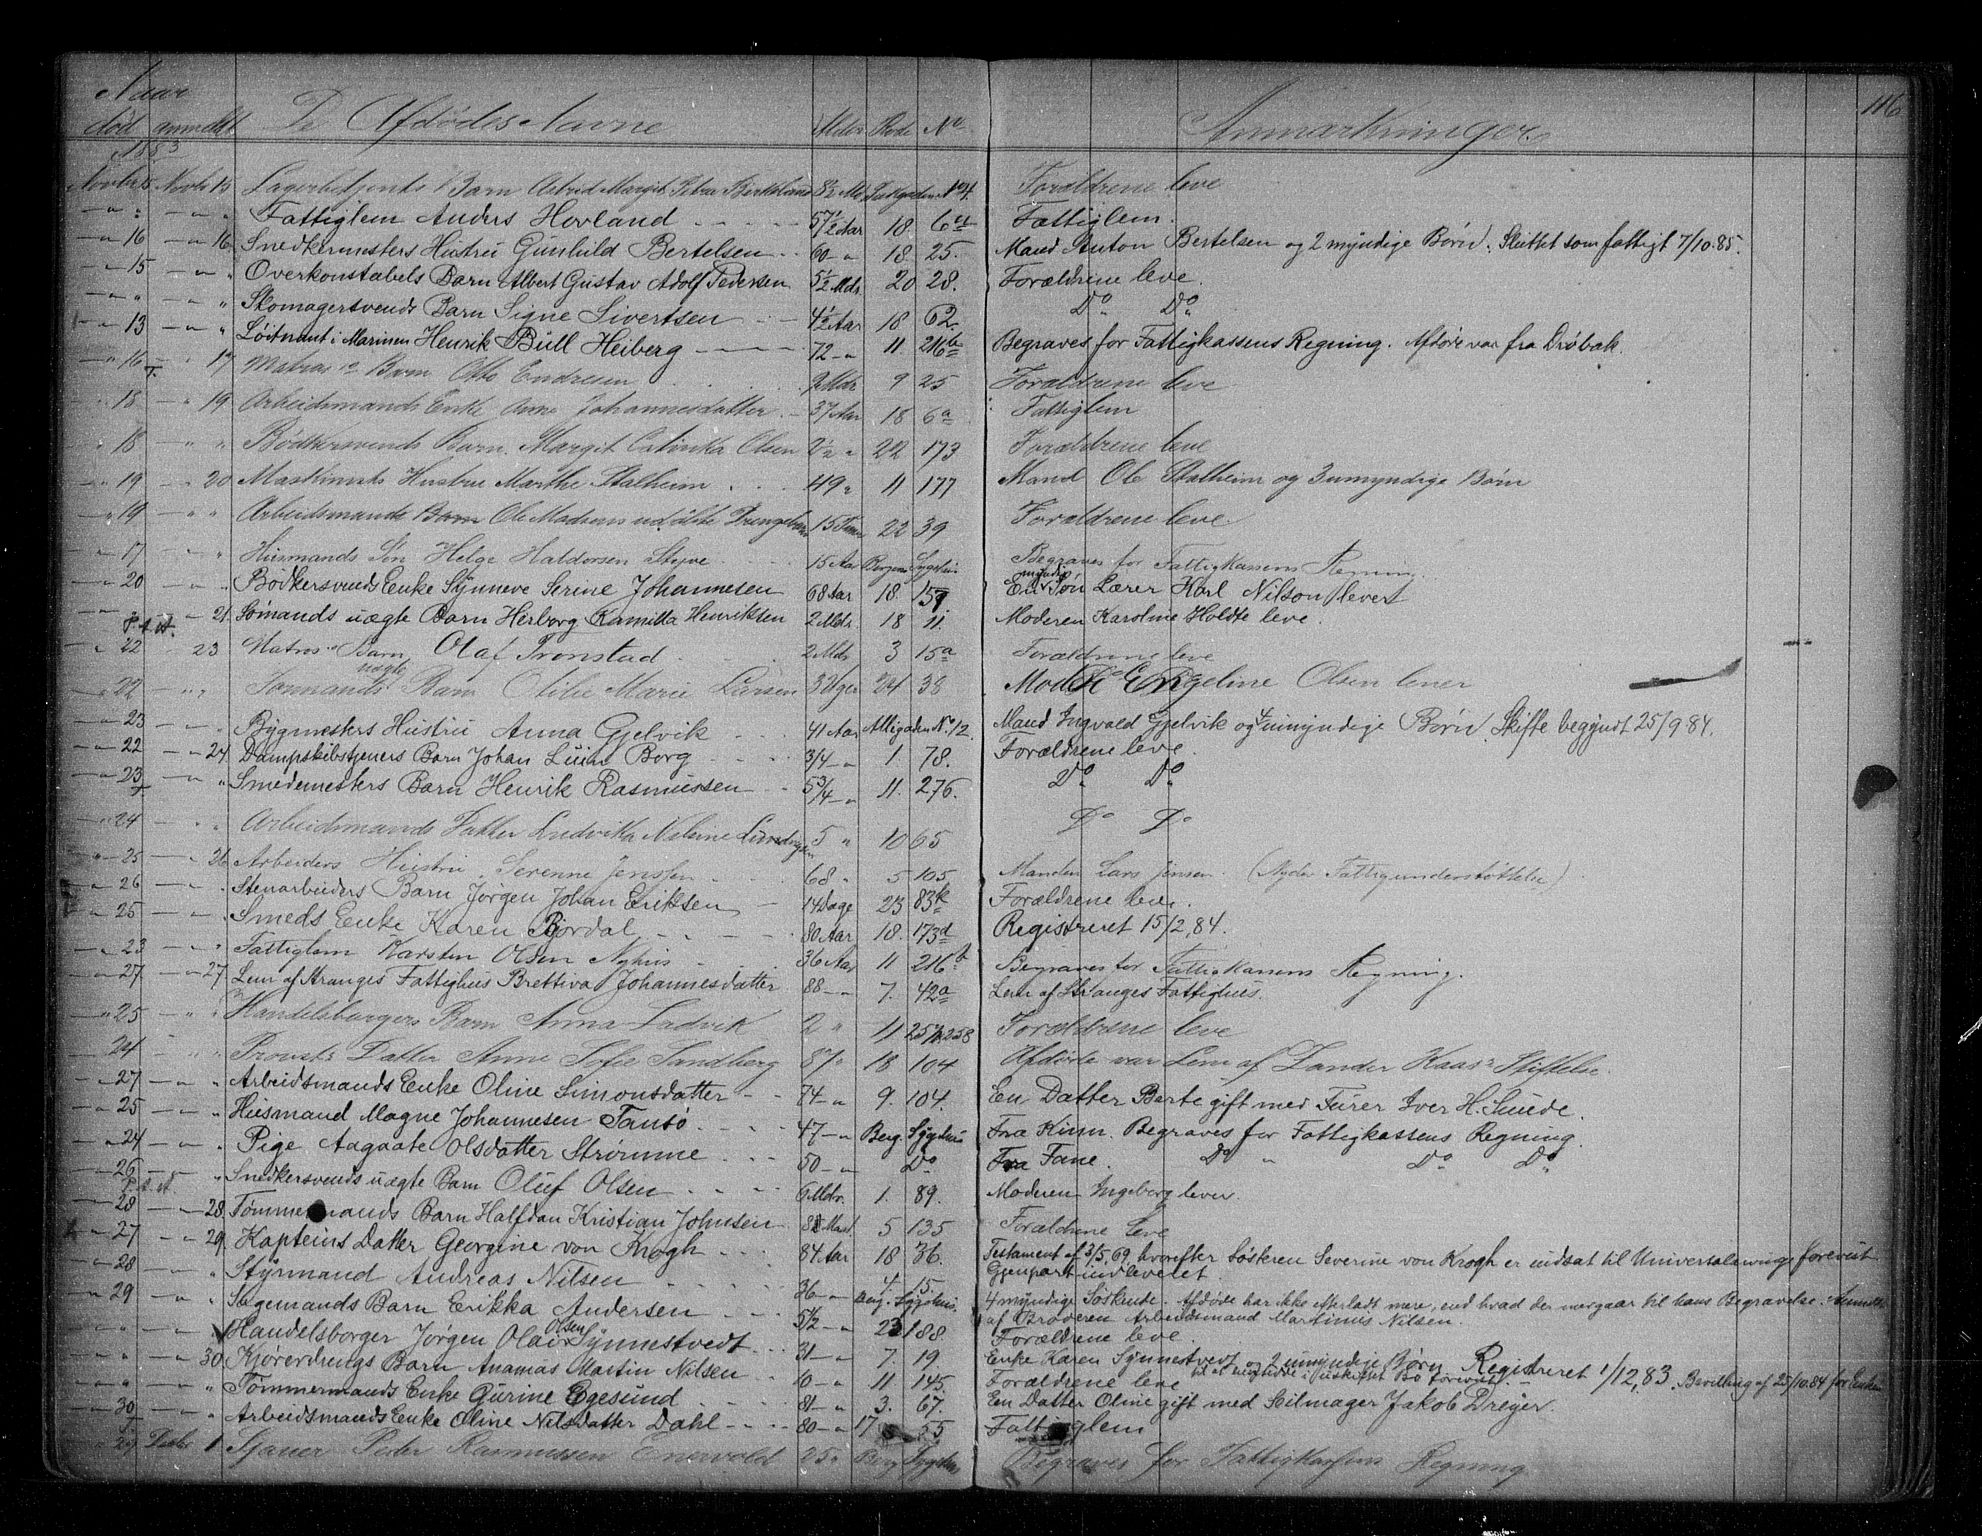 116
Naar
død anmeldt De Afdødes Navne Alder Rode No Anmærkninger
1883
Novbr 15 Novbr 15 Lagerbetjents Barn Astrid Margit Petra 8½ Md No 4. Forældrene leve
" " Fattiglem Anders Hovland 57½ Aar 18. 6a Fattiglem.
" 16 " 16 Snedkermesters Hustru Gunhild Bertelsen 60 " 18. 25. Mand Anton Bertelsen og 2 myndige Børn. Sluttet som fattigt 7/10.85.
" 15 " " Overkonstabels Barn Albert Gustav Adolf Pedersen 5½ Mdr. 20 28. Forældrene leve.
" " " " Skomagersvends Barn Signe Sivertsen 4½ Aar 18 62. Do Do
" 13 " " Løitnant i Marinen Henrik Bull Heiberg 72 " 11. 216b Begraves for Fattigkassens Regning. Afdøde var fra Drøbak.
" 16 " 17 Matros's Barn Otto Endresen 9 Mdr 9 25 Forældrene leve
" 18 " 19 Arbeidsmands Enke Anne Johannesdatter 37 Aar 18 6a Fattiglem
" 18 " " Bødkersvends Barn Margit Olsen 2½ " 22 173 Forældrene leve
" 19 " 20 Maskinists Hustru Marthe Stalheim 49 " 11 177 Mand Ole Stalheim og 3 umyndige Børn
" 19 " " Arbeidsmands Barn Ole Madsens udøbte Drengebarn 15 Timer 22 39 Forældrene leve
" 17 " " Husmands Søn Helge Haldorsen Styve 15 Aar Bergens Sygehus Begraves for Fattigkassens Regning.
" 20 " " Bødkersvends Enke Synneve Serine Johannesen 68 Aar 18. 159. En myndig Søn Lærer Karl Nilson lever
" 21 Sømands uægte Barn Herborg Kamilla Henriksen 2 Mdr. 18 11. Moderen Karoline Holdte leve.
" 22 " 23 Matros's Barn Olaf Tronstad 2 Mdr 3 15a Forældrene leve
" 22 " " Sømands uægte Barn Otilie Marie Larsen 3 Uger 24 38 Engeline Olsen lever
" 23 " " Bygmesters Hustru Anna Gjelvik 41 Aar No. 12. Mand Ingvald Gjelvik og 4 umyndige Børn. Skifte begyndt 25/9 84.
" 22 " 24 Dampskibstjeners Barn Johan Borg 3/4 " 1 78. Forældrene leve.
" 23 " " Smedemesters Barn Henrik Rasmussen 5¾ " 11. 276. Do Do
" 24 " " Arbeidsmands Datter Ludvika Nilsine 5 " 10 65 Do Do
" 25 " 26 Arbeiders Hustru Serenne Jensen 68 " 5 105 Manden Lars Jensen. (Nyder Fattigunderstøttelse)
" 26 " " Stenarbeiders Barn Jørgen Johan Eriksen 14 Dage 23 83k Forældrene leve.
" 25 " " Smeds Enke Karen Bjordal 80 Aar 18. 173d Registreret 15/2,84.
" 23 " " Fattiglem Karsten Olsen 36 Aar 11 216b Begraves for Fattigkassens Regning.
" 27 " 27 Lem af Stranges Fattighus Brettiva Johannesdatter 88 " 7. 42a Lem af Stranges Fattighus.
" 25 " " Handelsborgers Barn Anna Ladvik 2 " 11 257/258 Forældrene leve
" 24 " " Provsts Datter Anne Sofie Sandberg 87 " 18 104 Afdøde var Lem af Zander Kaas's Stiftelse.
" 27 " " Arbeidsmands Enke Oline Simonsdatter 74 " 9. 104. En Datter Berte gift med Furer Iver H. Sunde.
" 25 " " Husmand Magne Johannesen Tansø 47 " Berg. Sygehus Fra Kinn. Begraves for Fattigkassens Regning.
" 24 " " Pige Aagaate Olsdatter Strømme 50 " Do Fra Fane. Do " Do Do
" 26 " " Snedkersvends uægte Barn Oluf Olsen 6 Mdr. 1. 89. Moderen Ingeborg lever.
" 28 " 28 Tømmermands Barn Halfdan Kristian Johnsen 8 Maad. 5 135 Forældrene leve
" 27 " 29 Kapteins Datter Georgine von Krogh 84 Aar 18 36. Testament af 3/5,69, hvorefter Søsteren Severine von Krogh er indsat til Universalarving, forevist
Gjenpart indleveret.
" 28 " " Styrmand Andreas Nilsen 36 " 4. 15. Berg. Sygehus. 4 myndige Søskende. Afdøde har ikke efterladt mere, end hvad der medgaar til hans Begravelse.
af Broderen Arbeidsmand Martinus Nilsen.
" 29 " " Barn Erikka Andersen 5½ " 23 188. Forældrene leve.
" " " " Handelsborger Jørgen Olai Olsen Synnestvedt 31 " 7. 19 Enke Karen Synnestvedt og 2 umyndige Børn Registreret 1/12,83. Bevilling af 25/10.84 for Enken
til at hensidde i uskiftet Bo forevist.
" " " 30 Kjøredrengs Barn Ananias Martin Nilsen 10 " 11 145. Forældrene leve
" " " " Tømmermands Enke Gurine Egesund 81 " 3. 67. En Datter Oline gift med Seilmager Jakob Dreyer.
" 30 " " Arbeidsmands Enke Oline Nilsdatter Dahl 80 " 17 55 Fattiglem
" 29 Decbr 1 Sjauer Peder Rasmussen Enevold 25 " Berg Sygehus Begraves for Fattigkassens Regning